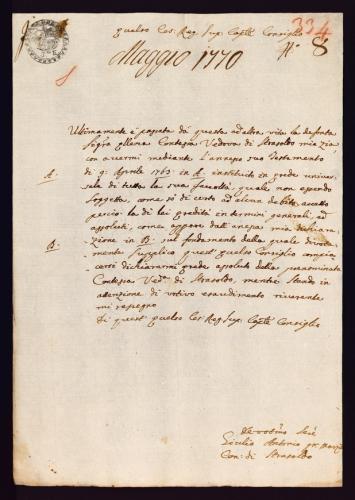 334
quelso Ces. Reg. Sup. Caple Consiglio
N° 8
Maggio 1770
Ultimamente è passata da questa ad altra vita la defonta
Sigra Elena Contessa Vedova di Strasoldo mia zia
con avermi mediante l'annesso suo Testamento
A. di 9. Aprile 1763 in A. instituito in erede univer-
sale di tutta la sua facoltà, quale non essendo
soggetta, come sò di certo ad alcun debito, accetto
perciò la di lei eredità in termini generali, ed
assoluti, come appare dall' anessa mia dichiara-
B. zione in B. sul fondamento della quale divota-
mente supplico quest' quelso Consiglio compia-
cersi dichiararmi erede assoluto della prenominata
Contessa Ved. di Strasoldo, mentre stando in
attenzione di votivo esaudimento riverente
mi rassegno
Di quest' quelso Ces. Reg. Sup. Caple Consiglio
Giulio Antonio
Con: di Strasoldo